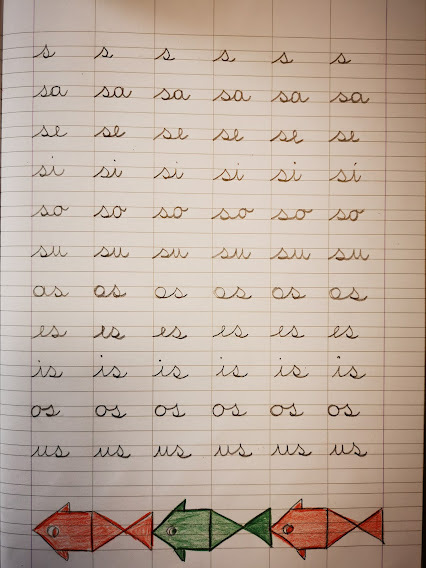 s s s s s s
sa sa sa sa sa sa
se se se se se se
si si si si si si
so so so so so so
su su su su su su
as as as as as as
es es es es es es
is is is is is is
os os os os os os
us us us us us us